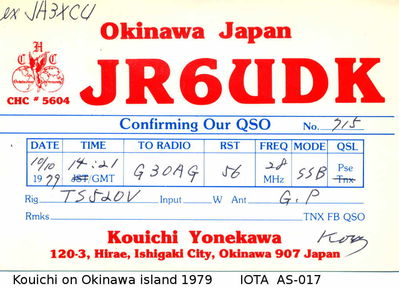 ex JA3XCU
Okinawa Japan
C H C
CHC # 5604
JR6UDK
Confirming Our QSO No. 715
DATE TIME TO RADIO RST FREQ MODE QSL
10/10 14:21 G3OAG 56 28 SSB Pse
1979 JST/GMT MHz Tnx
Rig TS520V Input W Ant G.P
Rmks TNX FB QSO
Kouichi Yonekawa
120-3, Hirae, Ishigaki City, Okinawa 907 Japan
Kouichi on Okinawa island 1979 IOTA AS-017